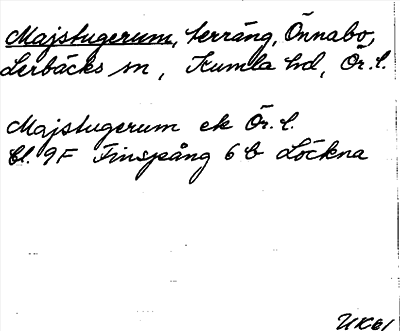 Majstugerum, terräng, Önnabo,
Lerbäcks sn, Kumla hd, Ör. l.
Majstugerum ek Ör. l.
bl. 9F Finspång 6 b Löckna
UK61